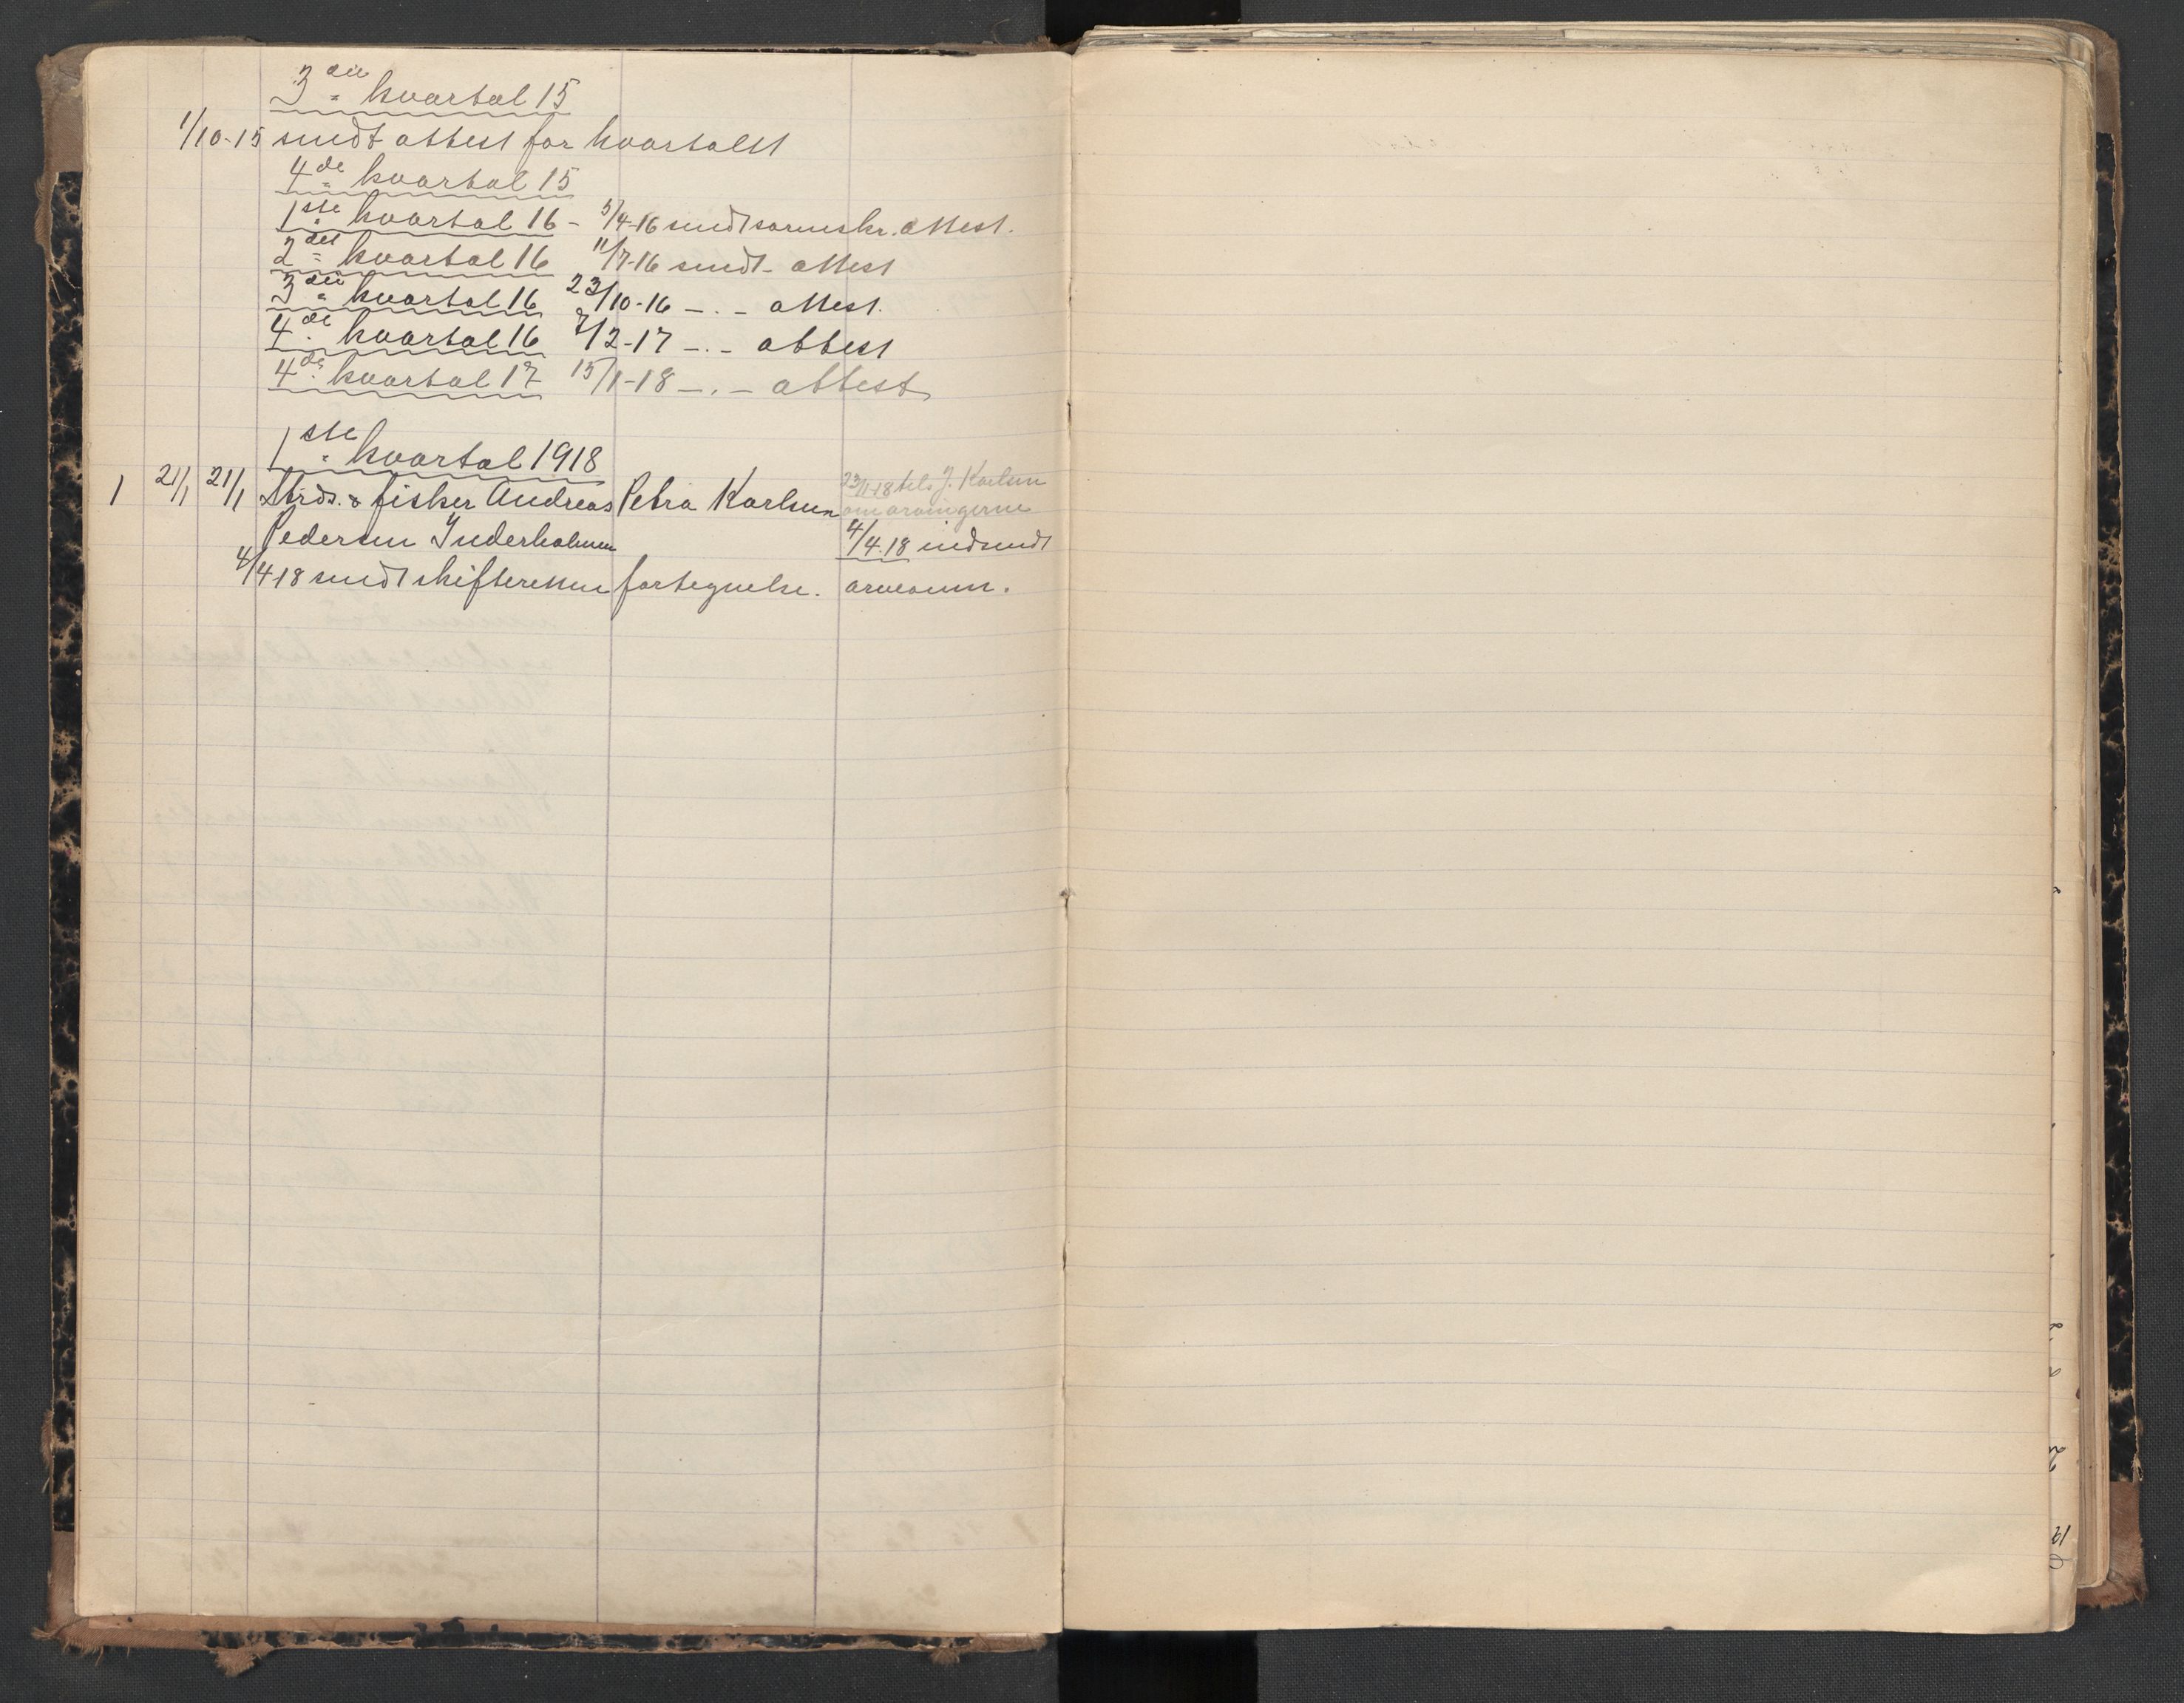 3die kvartal 15
1/10-15 sendt attest for kvartalet
4de kvartal 15
1ste kvartal 16 - 5/4-16 sendt sorenskr. attest.
2det kvartal 16 11/7-16 sendt - attest
3die kvartal 16 23/10-16 -.- attest.
4de kvartal 16 7/2-17 -.- attest
4de kvartal 17 15/1-18 -.- attest
1ste kvartal 1918
1 21/1 21/1 Strds. & fisker Andreas Petra Karlsen 23/1-18 tel. J. Karlsen
Pedersen Inderholmen om arvingerne
4/4.18 indsendt
4/4 18 sendt skifteretten fortegnelse. arveanm.